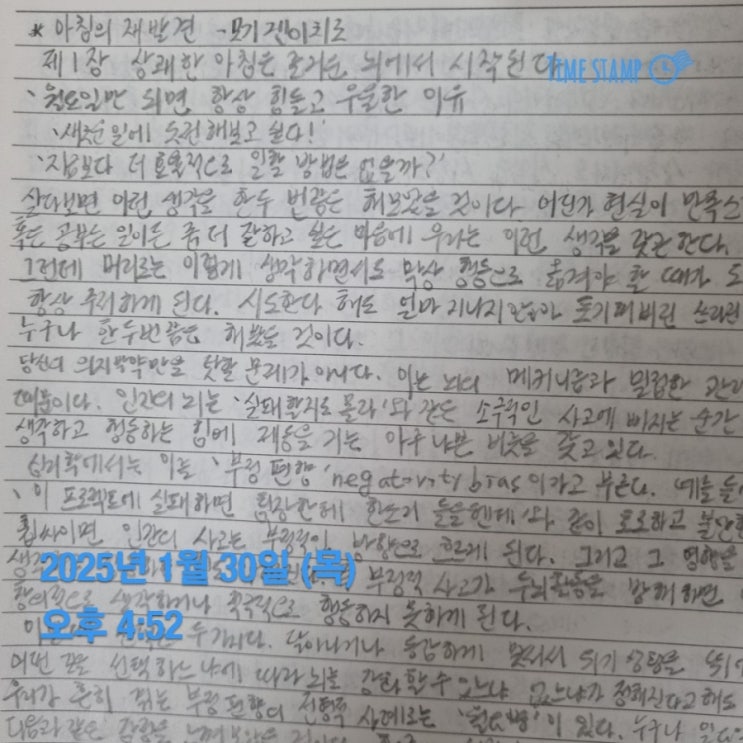 * 아침의 재발견 - 모기 겐이치로
제1장 상쾌한 아침은 즐거운 뇌에서 시작된다
TIME STAMP
'월요일만 되면 항상 힘들고 우울한 이유
'새로운 일에 도전해보고 싶다!'
'지금보다 더 효율적으로 일할 방법은 없을까?'
살다보면 이런 생각을 한두 번쯤은 해보았을 것이다. 어딘가 현실이 만족스
혹은 공부든 일이든 좀 더 잘하고 싶은 마음에 우리는 이런 생각을 갖곤 한다.
그런데 머리로는 이렇게 생각하면서도 막상 행동으로 옮겨야 할 때가 도
항상 주저하게 된다. 시도한다 해도 얼마 지나지 않아 포기해버린 쓰라린
누구나 한두번쯤은 해봤을 것이다.
당신의 의지박약만을 탓할 문제가 아니다. 이는 뇌의 메커니즘과 밀접한 관
때문이다. 인간의 뇌는 '실패할지도 몰라'와 같은 소극적인 사고에 빠지는 순간
생각하고 행동하는 힘에 제동을 거는 아주 나쁜 버릇을 갖고 있다.
심리학에서는 이를 '부정 편향' negativity bias이라고 부른다. 예를 들
'이 프로젝트에 실패하면 팀장한테 한소리 들을텐데'와 같이 초조하고 불안한
휩싸이면 인간의 사고는 부정적인 방향으로 흐르게 된다. 그리고 그 영향을
생각 부정적 사고가 두뇌활동을 방해하면
2025년 1월 30일 (목)
생각하거나 적극적으로 행동하지 못하게 된다.
오후 4:52
두가지다. 달아나거나 둔감하게 맞서서 위기 상황을
어떤 것을 선택하느냐에 따라 뇌를 강화할 수 있느냐 없느냐가 정해진다고 해도
우리가 흔히 겪는 부정 편향의 전형적 사례로는 '월요병'이 있다. 누구나 일요
다음과 같은 감정을